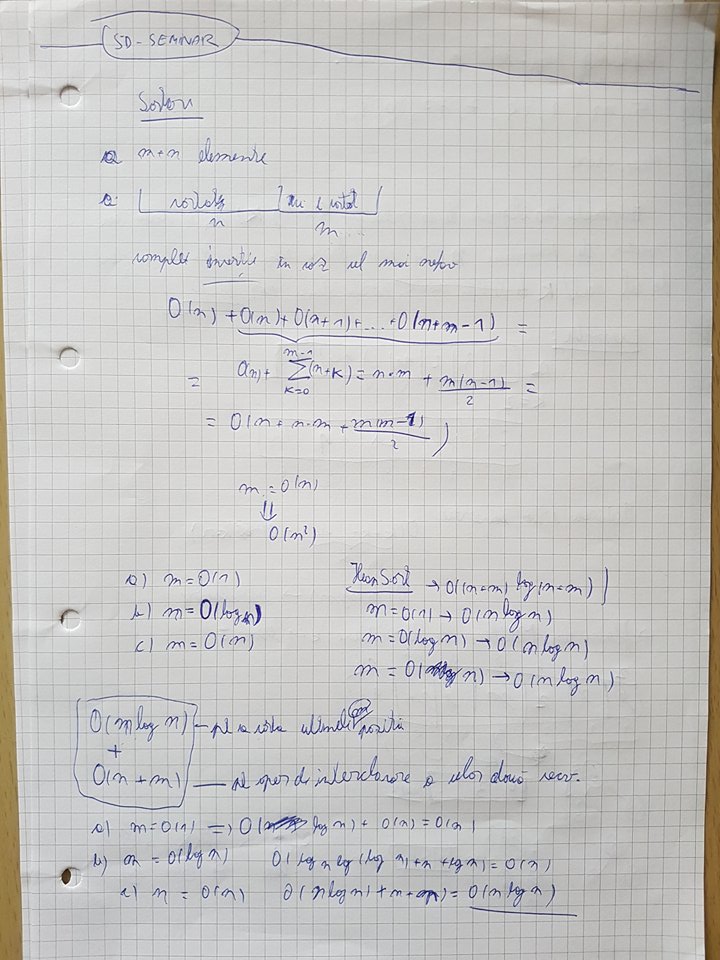 SD-SEMINAR
Sortări
m+n elemente
sortat
n m
complex inserție în caz cel mai nefav
O(n) + O(n) + O(n+1) + ... + O(n+m-1) =
= O(n) + \sum_{k=0}^{m-1} (n+k) = n·m + m(m-1)/2 =
= O(n + n·m + m(m-1)/2)
m = O(n)
⇓
O(n²)
a) m = O(1)
b) m = O(log n)
c) m = O(n)
HeapSort → O((n+m) log(n+m))
m = O(1) → O(n log n)
m = O(log n) → O(n log n)
m = O(n) → O(n log n)
O(m log n) — pt a sorta ultimele m poziții
+
O(n+m) — pt oper de interclasare a celor două secv.
a) m = O(1) => O( log n) + O(n) = O(n)
b) m = O(log n) O(log n log(log n) + n + log n) = O(n)
c) n = O(n) O(n log n) + n + n) = O(n log n)